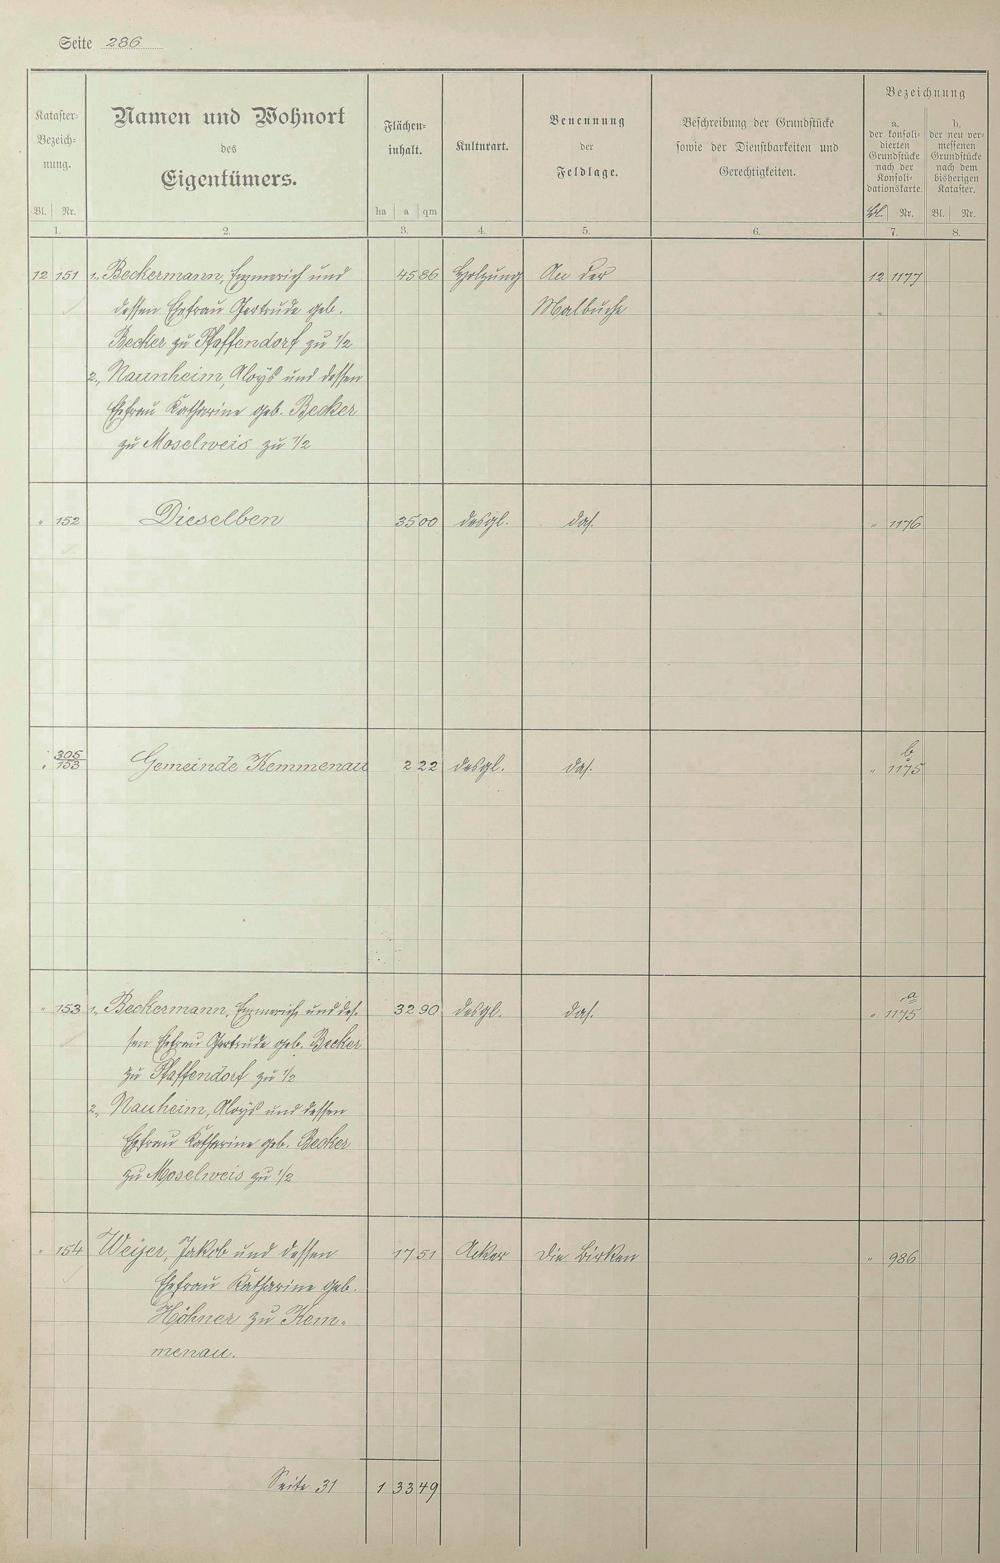 Seite 286
Kataster-
Bezeich-
nung.
Bl. Nr.
1.
Namen und Wohnort
des
Eigentümers.
2.
Flächen-
inhalt.
ha a qm
3.
Kulturart.
4.
Benennung
der
Feldlage.
5.
Beschreibung der Grundstücke
sowie der Dienstbarkeiten und
Gerechtigkeiten.
6.
Bezeichnung
a.
der konsoli-
dierten
Grundstücke
nach der
Konsoli-
dationskarte.
Bl. Nr.
7.
b.
der neu ver-
messenen
Grundstücke
nach dem
bisherigen
Kataster.
Bl. Nr.
8.
12 151 1., Beckermann, Emmerich und 45 86 Holzung An der 12 1177
dessen Ehefrau Gertrude geb. Malbuche
Becker zu Pfaffendorf zu 1/2
2., Naunheim, Aloys und dessen
Ehefrau Katharine geb. Becker
zu Moselweis zu 1/2
" 152 Dieselben 35 00 desgl. das. " 1176
" 305/153 Gemeinde Kemmenau 2 22 desgl. das. " b/1175
" 153 1., Beckermann, Emmerich und des- 32 90 desgl. das. " a/1175
sen Ehefrau Gertrude geb. Becker
zu Pfaffendorf zu 1/2
2., Nauheim, Aloys und dessen
Ehefrau Katharine geb. Becker
zu Moselweis zu 1/2
" 154 Weijer, Jakob und dessen 17 51 Acker Die Birken " 986
Ehefrau Katharine geb.
Höhner zu Kem-
menau.
Seite 31 1 33 49